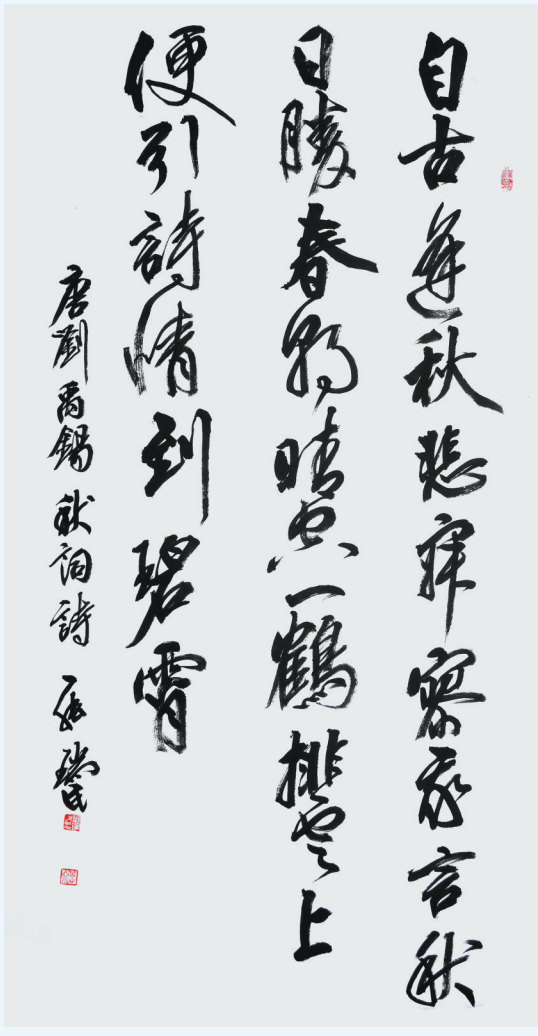 自古逢秋悲寂寥我言秋
日勝春朝晴空一鶴排雲上
便引詩情到碧霄
唐劉禹錫秋詞詩